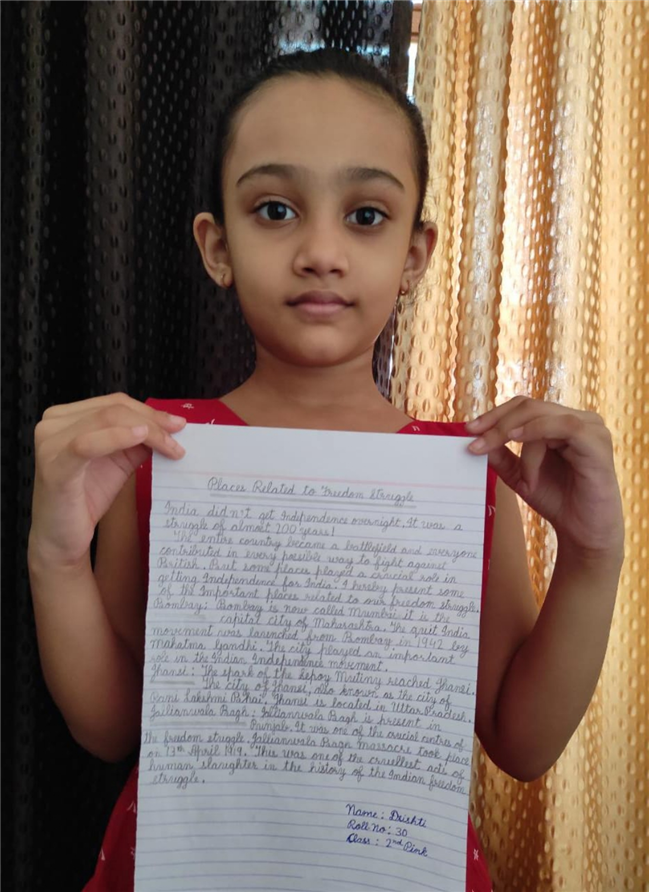 Places Related to Freedom Struggle
India didn't get Independence overnight. It was a
struggle of almost 200 years!
The entire country became a battlefield and everyone
contributed in every possible way to fight against
British. But some places played a crucial role in
getting Independence for India. I hereby present some
of the Important places related to our freedom struggle.
Bombay: Bombay is now called Mumbai it is the
capital city of Maharashtra. The quit India
movement was launched from Bombay in 1942 by
Mahatma Gandhi. The city played an important
role in the Indian Independence movement.
Jhansi: The spark of the Sepoy Mutiny reached Jhansi.
The city of Jhansi, also known as the city of
Rani Lakshmi Bhai. Jhansi is located in Uttar Pradesh.
Jallianwala Bagh: Jallianwala Bagh is present in
Punjab. It was one of the crucial centres of
the freedom struggle. Jallianwala Bagh Massacre took place
on 13th April 1919. This was one of the cruellest acts of
human slaughter in the history of the Indian freedom
struggle.
Name: Drishti
Roll No: 30
Class: 2nd Pink